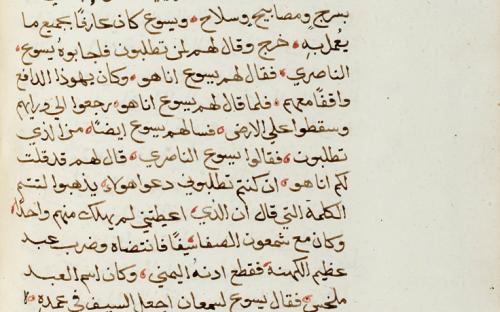 بسرج ومصابيح وسلاح • ويسوع كان عارفًا بجميع ما
يعمل به • خرج وقال لهم لمن تطلبون • فاجابوه يسوع
الناصري • فقال لهم يسوع انا هو • وكان يهوذا الدافع
واقفًا معهم • فلما قال لهم يسوع انا هو • رجعوا الي ورايهم
وسقطوا علي الارض • فسالهم يسوع ايضًا • من الذي
تطلبون • فقالوا يسوع الناصري • قال لهم قد قلت
لكم انا هو • ان كنتم تطلبوني دعوا هولاء يذهبوا لتتم
الكلمة التي قال ان الذي اعطيتني لم يهلك منهم واحدًا
وكان مع شمعون الصفا سيفًا فانتضاه وضرب عبد
عظيم الكهنة • فقطع ادنه اليمني • وكان اسم العبد
ملخس • فقال يسوع لسمعان اجعل السيف في غمده •